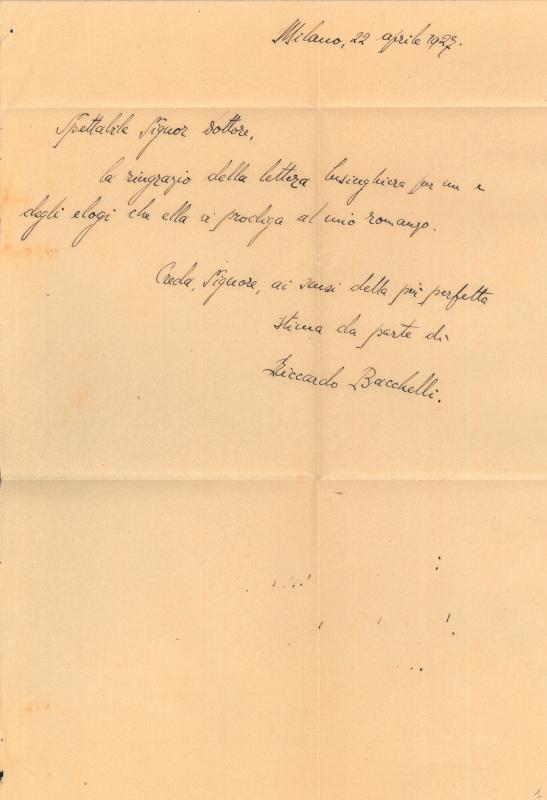 Milano, 22 aprile 1927.
Spettabile Signor Dottore,
la ringrazio della lettera lusinghiera per me e
degli elogi che ella vi prodiga al mio romanzo.
Creda, Signore, ai sensi della più perfetta
stima da parte di
Riccardo Bacchelli.